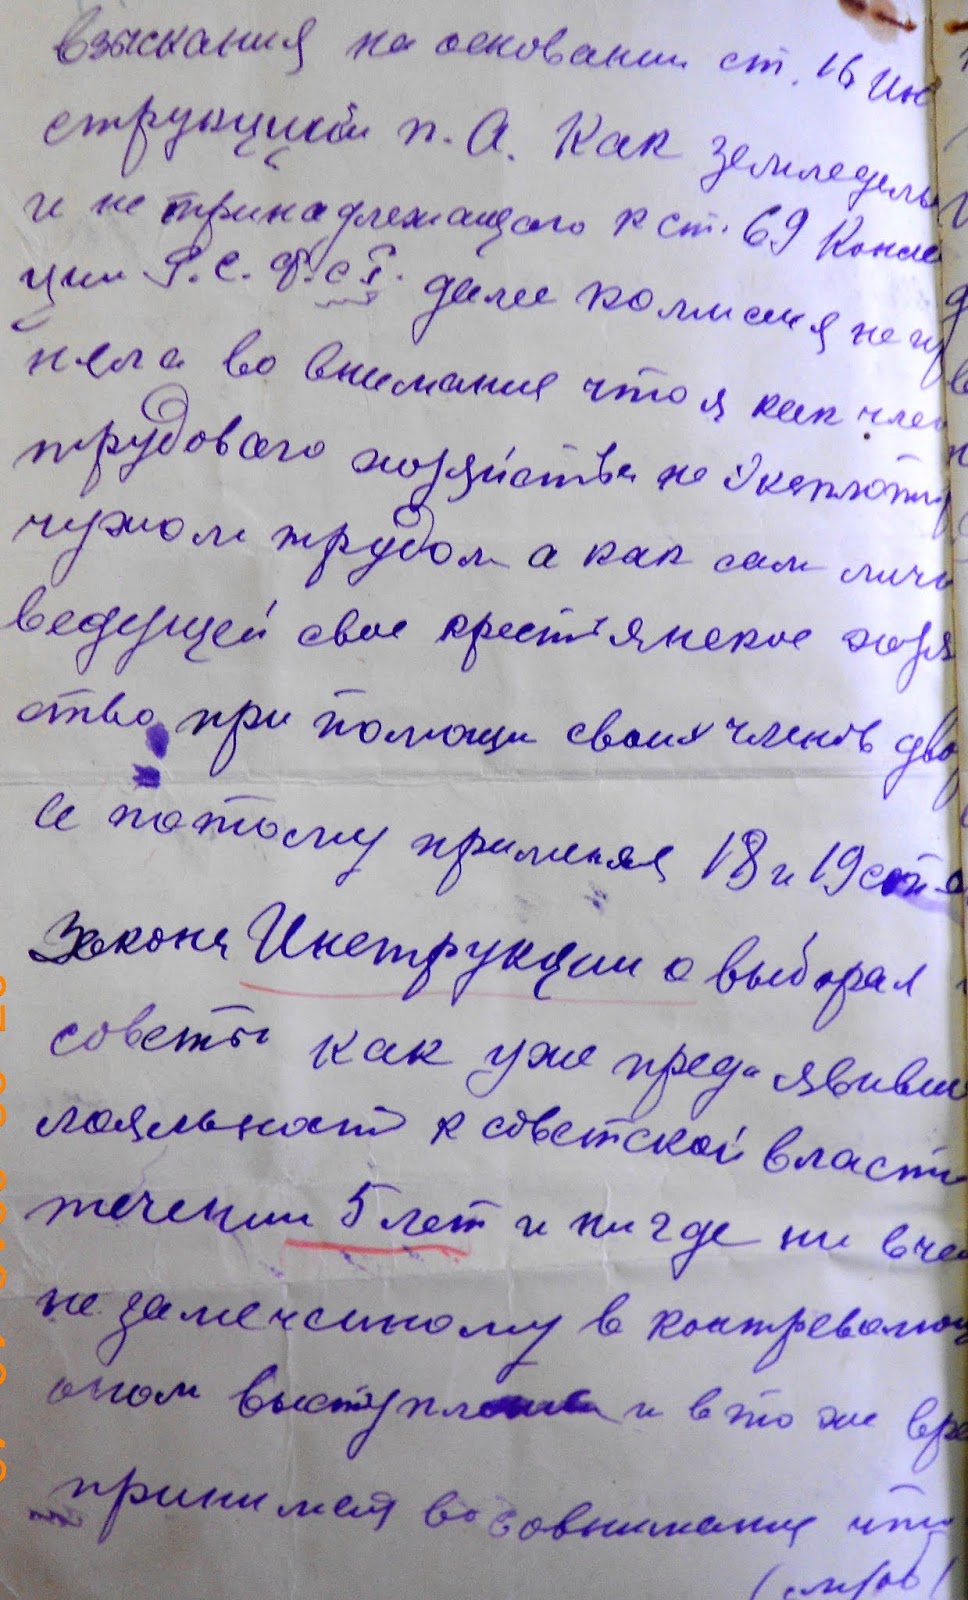 взыскания на основании ст. 16 Ин
струкций п. А. Как земледель
и не принадлежащого к ст. 69 Конст
ции Р.С.Ф.С.Р. далее комисия не пр
няла во внимания что я как член
трудового хозяйства не экеплотир
чужом трудом а как сам лично
ведущей свое крестьянское хозя
ство при помощи своих членов дво
И потому применяя 18 и 19 ст
Закона Инструкции о выборах
советы как уже пред-явивш
лояльност к советской власти
течении 5 лет и ни где ни в че
не замеченому в контреволюц
оном выступление и в то же вре
принимая во внимания что